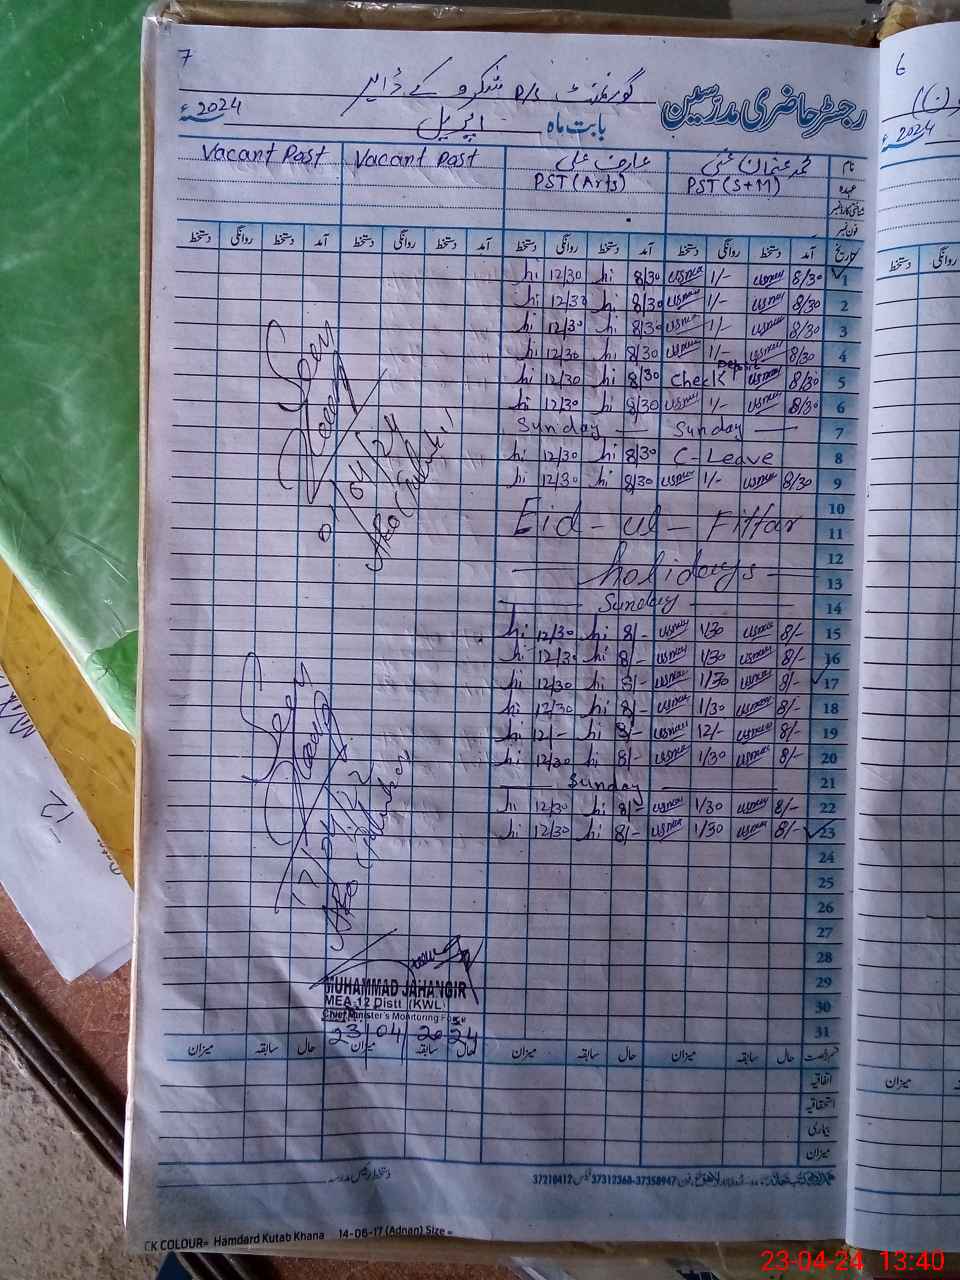 7
گورنمنٹ P/S
رجسٹر حاضری مدرسین
بابت ماہ اپریل
2024ء
نام
محمد عثمان غنی
عارف علی
Vacant Post
Vacant Post
عہدہ
PST (S+M)
PST (Arts)
فون نمبر
تاریخ آمد دستخط روانگی دستخط آمد دستخط روانگی دستخط آمد دستخط روانگی دستخط آمد دستخط روانگی دستخط
1 8/30 usman 1/- usman 8/30 hi 12/30 hi
2 8/30 usman 1/- usman 8/30 hi 12/30 hi
3 8/30 usman 1/- usman 8/30 hi 12/30 hi
4 8/30 usman 1/- usman 8/30 hi 12/30 hi
5 8/30 usman Check 8/30 hi 12/30 hi
6 8/30 usman 1/- usman 8/30 hi 12/30 hi
7 Sunday Sunday
8 C-Leave 8/30 hi 12/30 hi
9 8/30 usman 1/- usman 8/30 hi 12/30 hi
10
11 Eid-ul-Fittar
12
13 holidays
14 Sunday
15 8/- usman 1/30 usman 8/- hi 12/30 hi
16 8/- usman 1/30 usman 8/- hi 12/30 hi
17 8/- usman 1/30 usman 8/- hi 12/30 hi
18 8/- usman 1/30 usman 8/- hi 12/30 hi
19 8/- usman 12/- usman 8/- hi 12/- hi
20 8/- usman 1/30 usman 8/- hi 12/30 hi
21 Sunday
22 8/- usman 1/30 usman 8/- hi 12/30 hi
23 8/- usman 1/30 usman 8/- hi 12/30 hi
24
25
26
27
28
29
30
31
Seen
01/04/24
AEO
Seen
17/04/
AEO
MUHAMMAD JAHANGIR
MEA-12 Distt (KWL)
Chief Minister's Monitoring Force
23/04/2024
قسم رخصت حال سابقہ میزان حال سابقہ میزان حال سابقہ میزان حال سابقہ میزان
اتفاقیہ
استحقاقیہ
بیماری
میزان
دستخط رئیس مدرسہ
37310412 37312368-37358947
CK COLOUR= Hamdard Kutab Khana 14-06-17 (Adnan) Size =
6
2024ء
روانگی دستخط
میزان
12
23-04-24 13:40